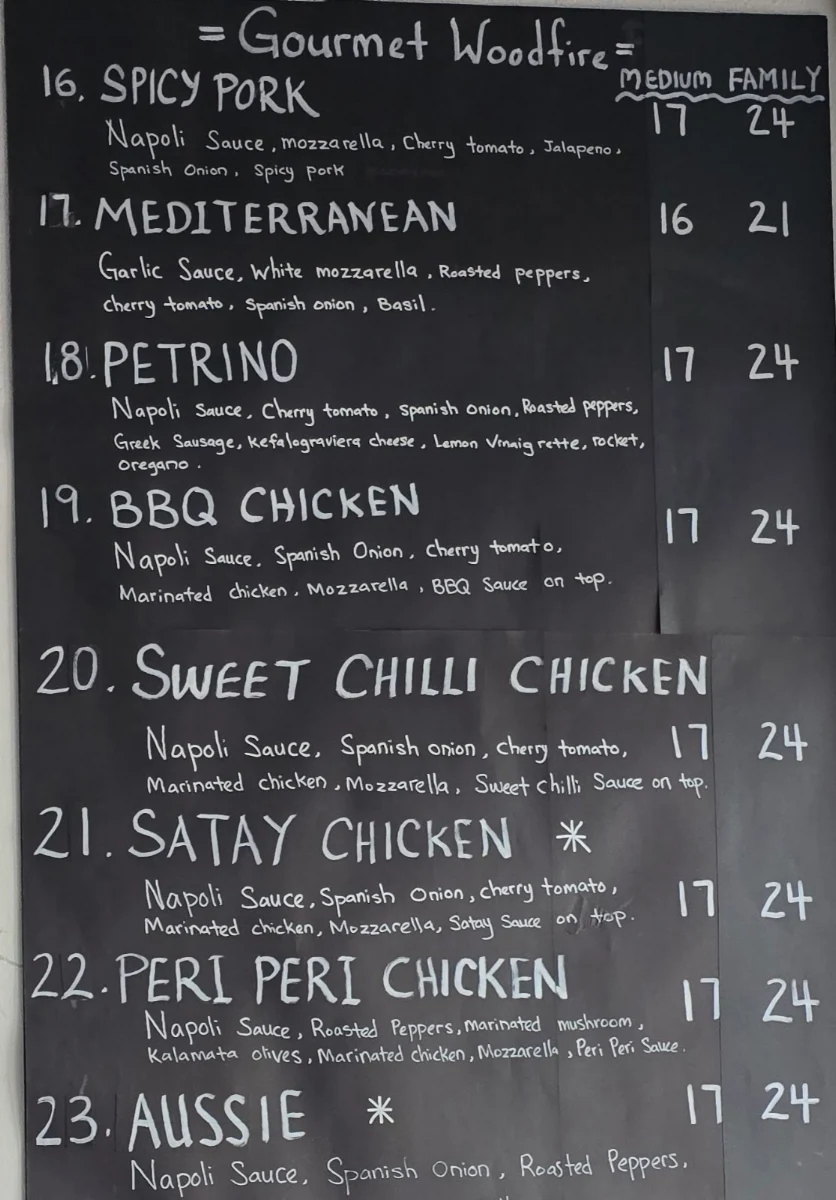 = Gourmet Woodfire =
MEDIUM FAMILY
16. SPICY PORK 17 24
Napoli Sauce, mozzarella, Cherry tomato, Jalapeno,
Spanish Onion, Spicy pork
17. MEDITERRANEAN 16 21
Garlic Sauce, White mozzarella, Roasted peppers,
Cherry tomato, Spanish onion, Basil.
18. PETRINO 17 24
Napoli Sauce, Cherry tomato, Spanish Onion, Roasted peppers,
Greek Sausage, Kefalograviera cheese, Lemon Vinaigrette, rocket,
oregano.
19. BBQ CHICKEN 17 24
Napoli Sauce, Spanish Onion, Cherry tomato,
Marinated chicken, Mozzarella, BBQ Sauce on top.
20. SWEET CHILLI CHICKEN
Napoli Sauce, Spanish onion, Cherry tomato, 17 24
Marinated chicken, Mozzarella, Sweet chilli Sauce on top.
21. SATAY CHICKEN *
Napoli Sauce, Spanish Onion, cherry tomato, 17 24
Marinated chicken, Mozzarella, Satay Sauce on top.
22. PERI PERI CHICKEN 17 24
Napoli Sauce, Roasted Peppers, marinated mushroom,
Kalamata olives, Marinated chicken, Mozzarella, Peri Peri Sauce.
23. AUSSIE * 17 24
Napoli Sauce, Spanish Onion, Roasted Peppers,